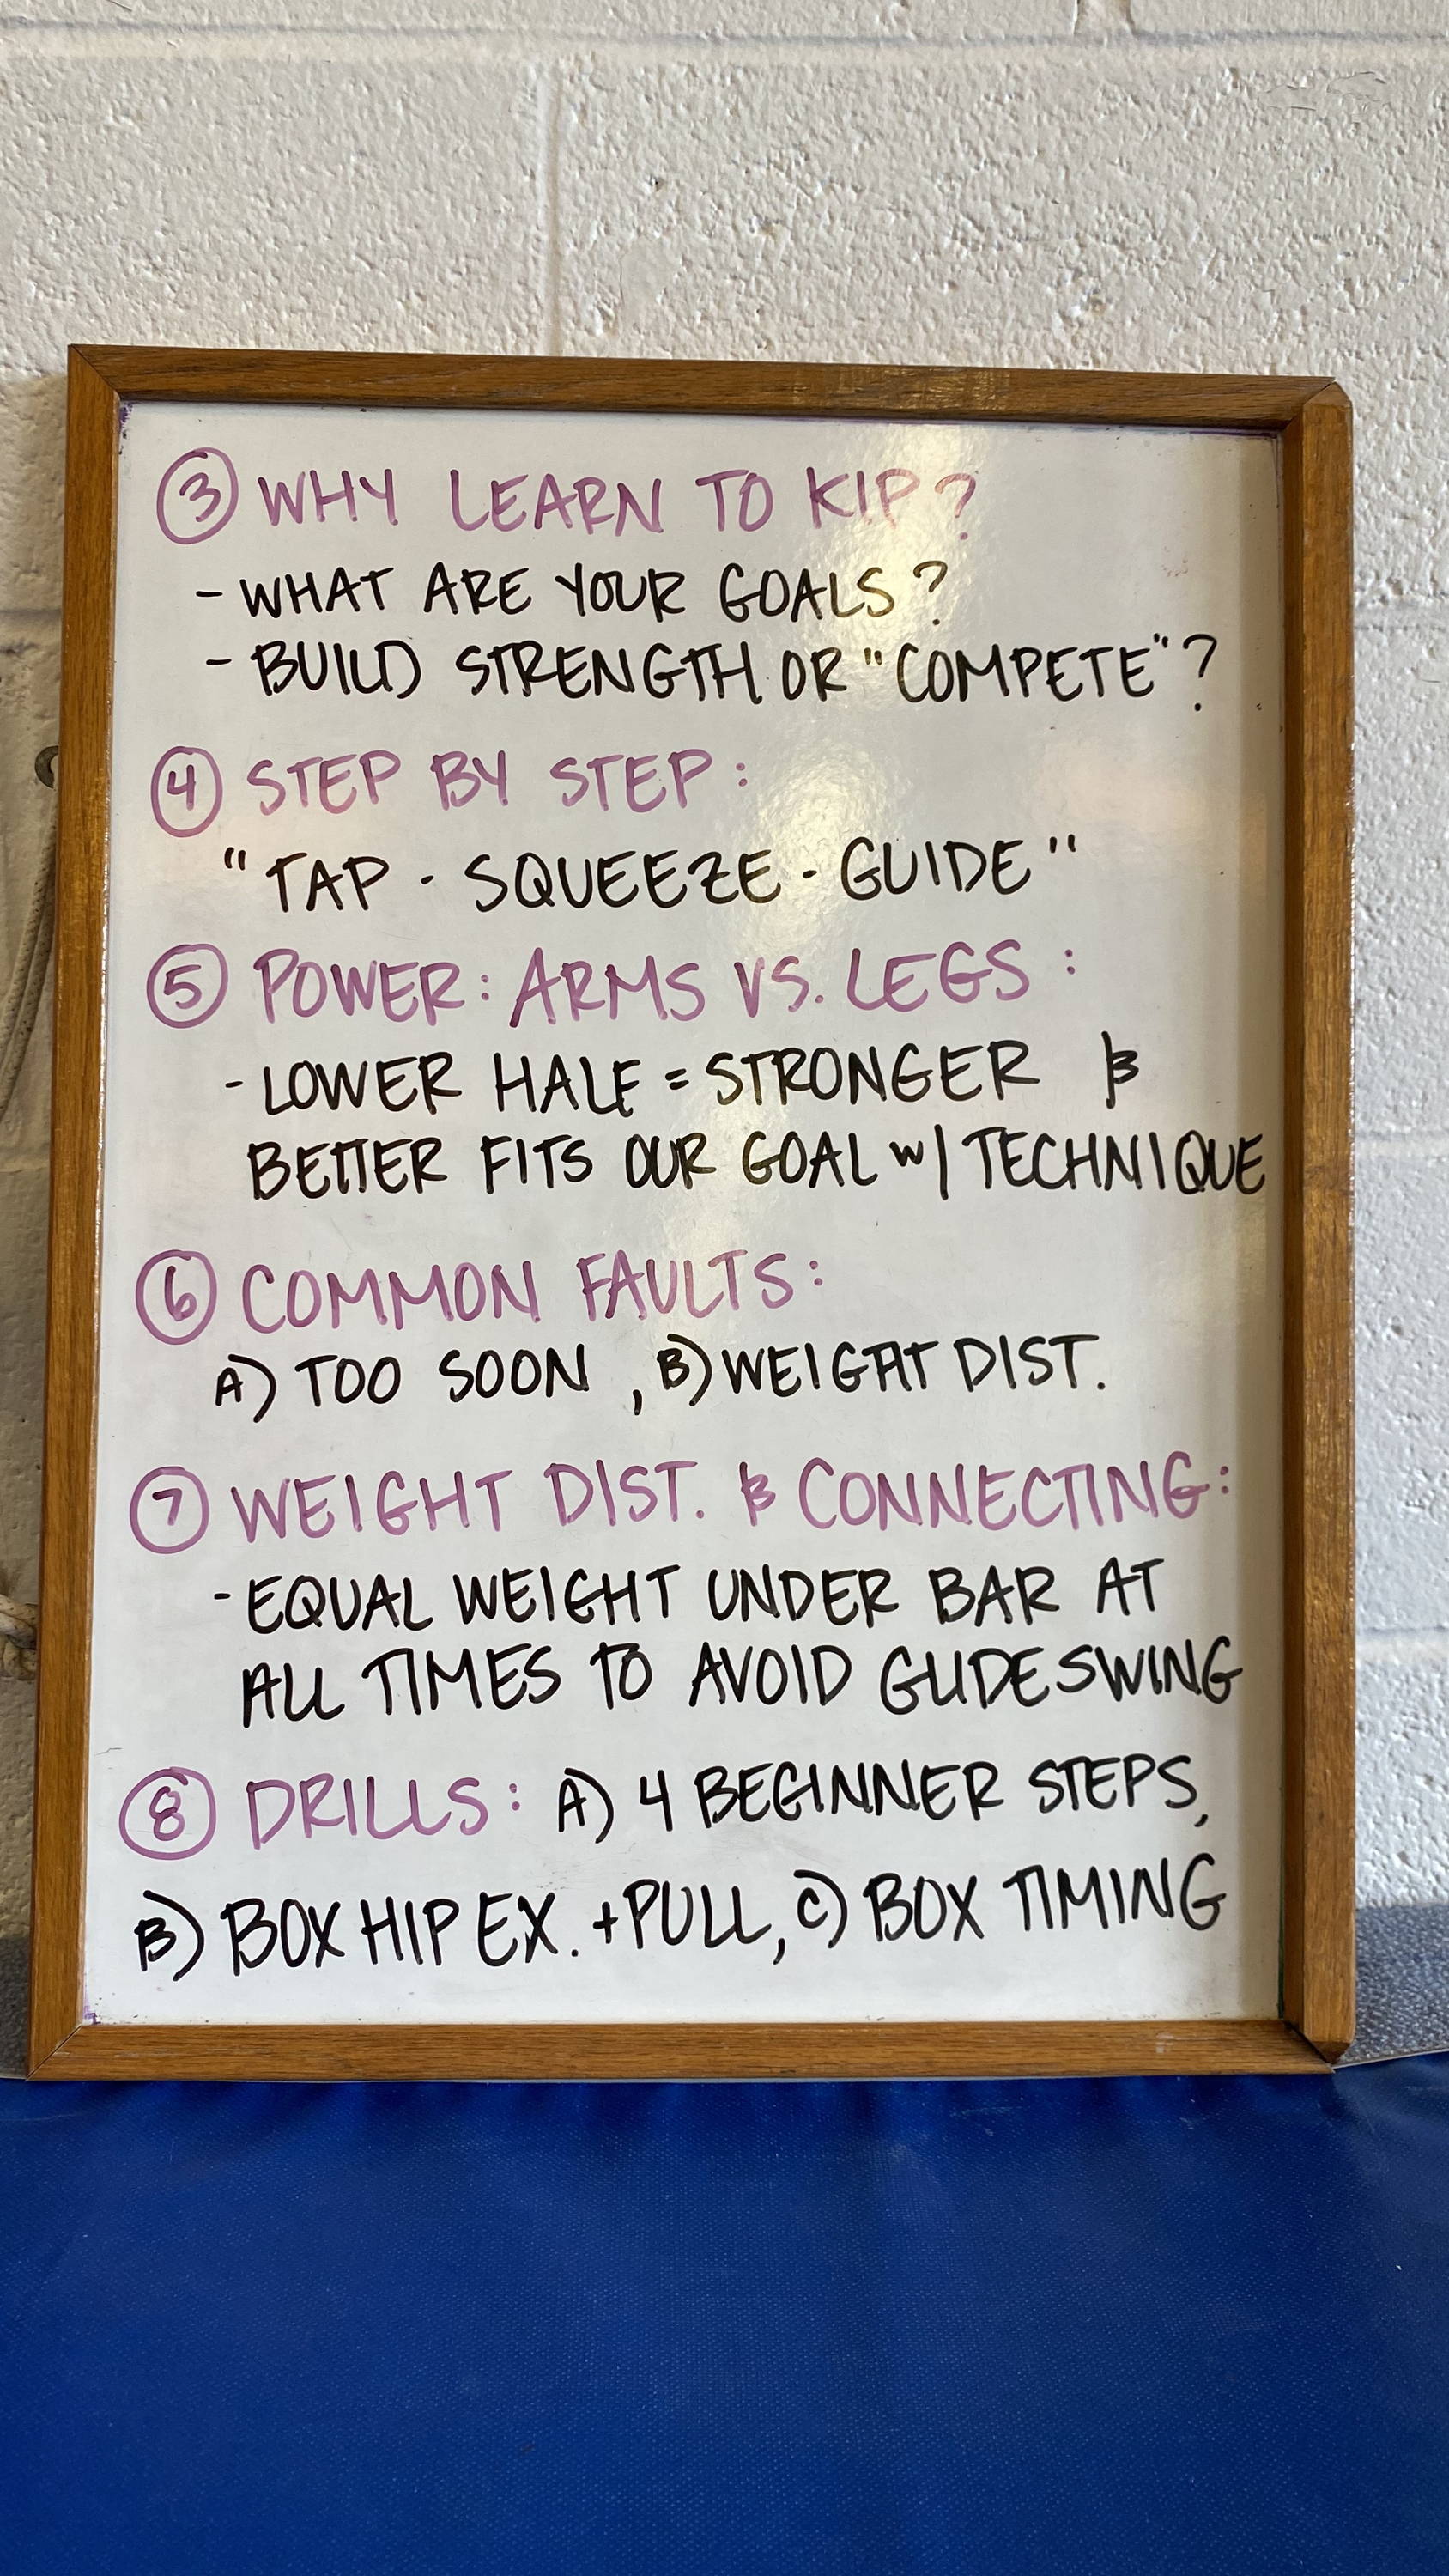 ③ WHY LEARN TO KIP?
- WHAT ARE YOUR GOALS?
- BUILD STRENGTH OR "COMPETE"?
④ STEP BY STEP:
"TAP · SQUEEZE · GUIDE"
⑤ POWER: ARMS VS. LEGS:
- LOWER HALF = STRONGER &
BETTER FITS OUR GOAL W/ TECHNIQUE
⑥ COMMON FAULTS:
A) TOO SOON, B) WEIGHT DIST.
⑦ WEIGHT DIST. & CONNECTING:
- EQUAL WEIGHT UNDER BAR AT
ALL TIMES TO AVOID GLIDESWING
⑧ DRILLS: A) 4 BEGINNER STEPS,
B) BOX HIP EX. + PULL, C) BOX TIMING